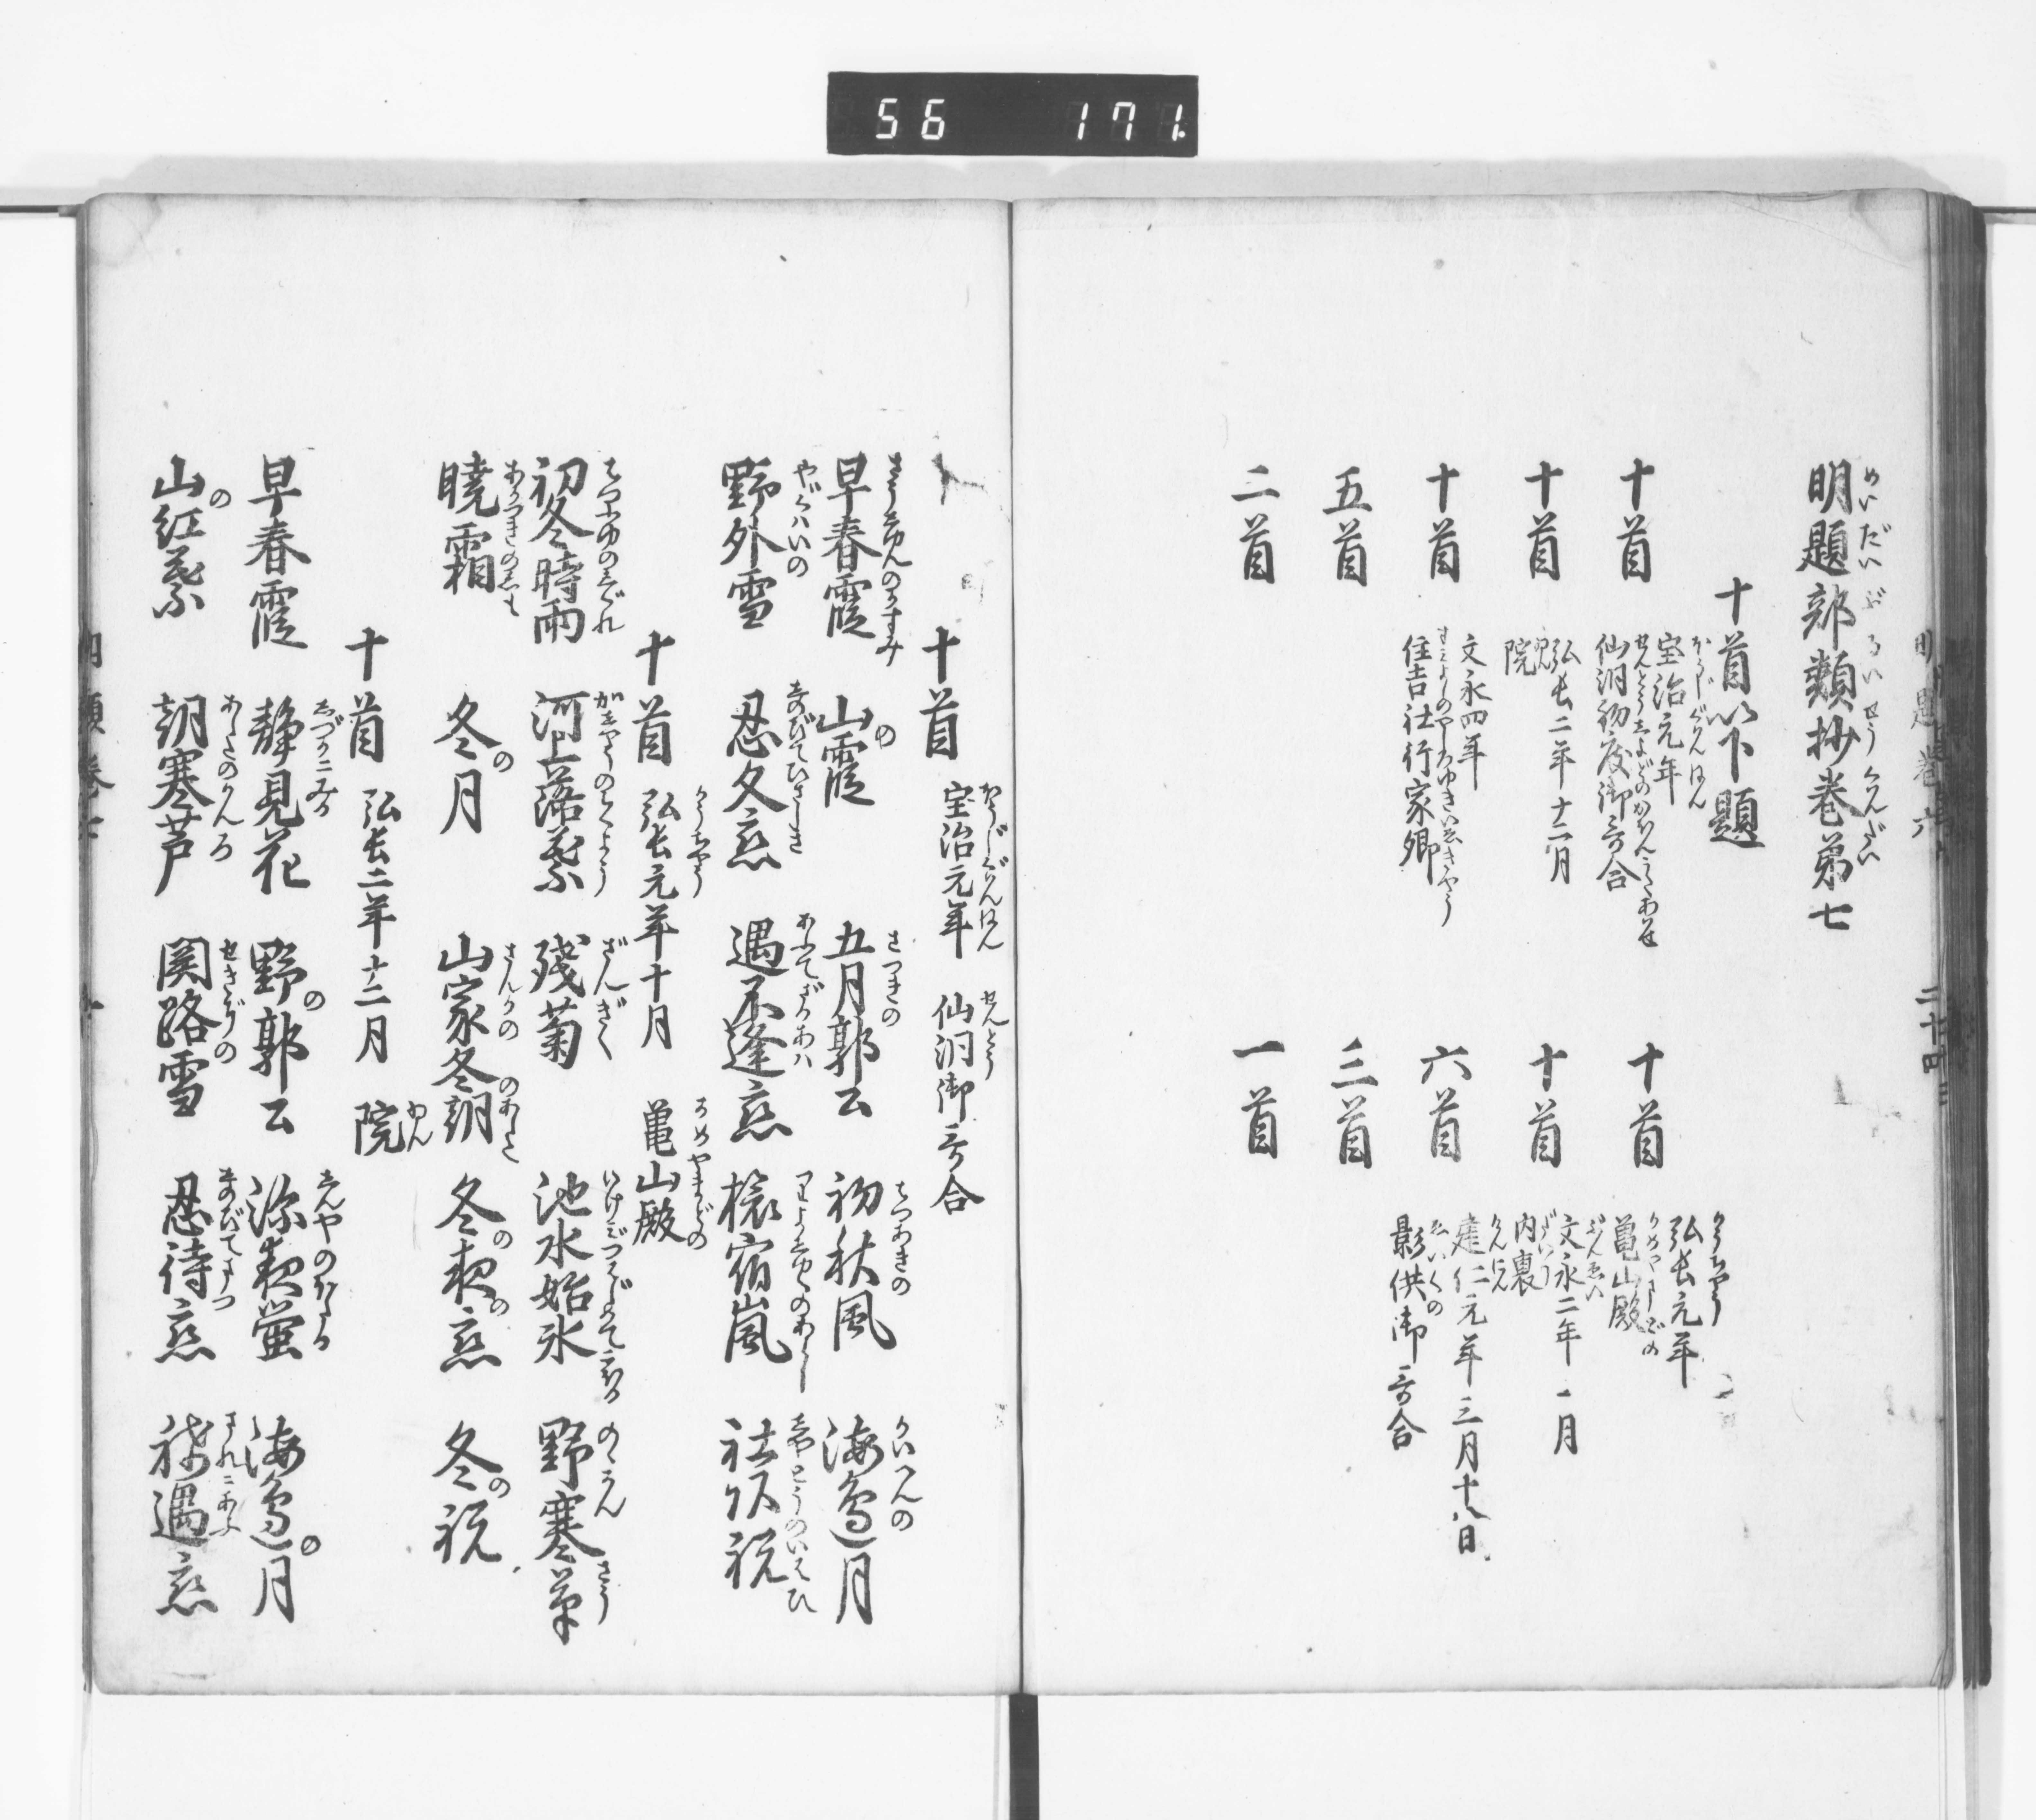 56 171
明題部類抄巻第七
十首以下題
十首 宝治元年
仙洞初度御哥合
十首 弘長元年
亀山殿
十首 弘長二年十二月
院
十首 文永二年一月
内裏
十首 文永四年
住吉社行家卿
六首 建仁元年三月十八日
影供御哥合
五首 三首
二首 一首
十首 宝治元年 仙洞御哥合
早春霞 山霞 五月郭公 初秋風 海邊月
野外雪 忍久恋 遇不逢恋 旅宿嵐 社頭祝
十首 弘長元年十月 亀山殿
初冬時雨 河上落葉 残菊 池水始氷 野寒草
暁霜 冬月 山家冬朝 冬夜恋 冬祝
十首 弘長二年十二月 院
早春霞 静見花 野郭公 深夜蛍 海邊月
山紅葉 朝寒芦 関路雪 忍待恋 稀遇恋